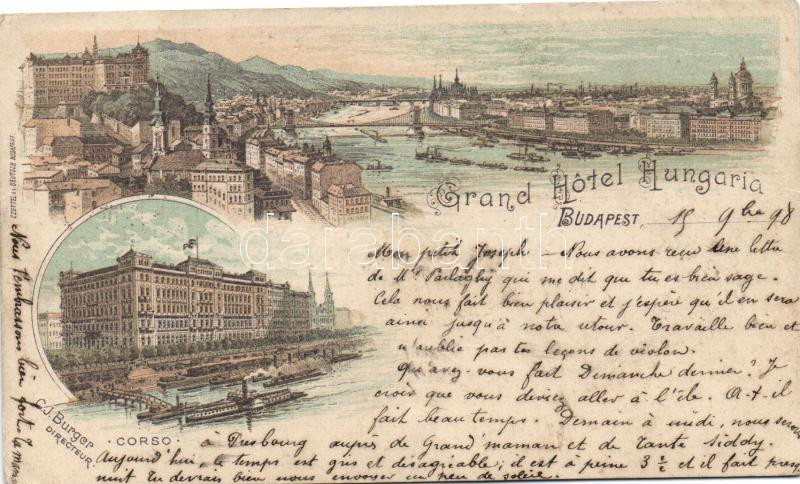 Grand Hôtel Hungaria
BUDAPEST, 15 9bre 98
Mon petit Joseph – Nous avons reçu une lettre
de Mr. Parlaghy qui me dit que tu es bien sage.
Cela nous fait bien plaisir et j'espère qu'il en sera
ainsi jusqu'à notre retour. Travaille bien et
n'oublie pas tes leçons de violon.
Qu'avez-vous fait Dimanche dernier? Je
crois que vous deviez aller à l'île. A-t-il
fait beau temps. Demain à midi, nous serons
à Presbourg auprès de Grand'maman et de Tante Siddy.
Aujourd'hui, le temps est gris et désagréable; il est à peine 3 ½ et il fait presque
nuit. Tu devrais bien nous envoyer un peu de soleil.
Nous t'embrassons bien fort. Ta mam
C.J. Burger
DIRECTEUR.
· CORSO ·
darabanth